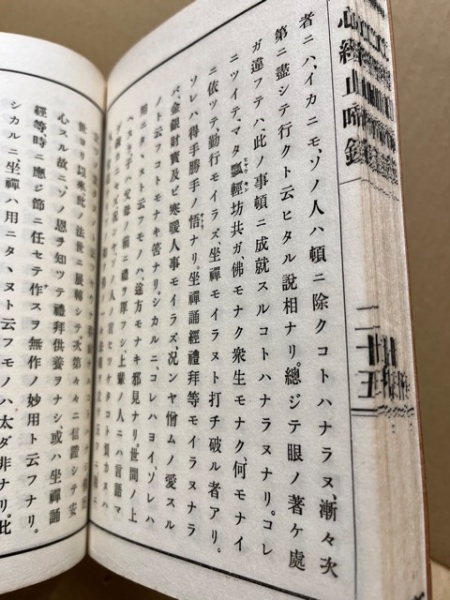 心經止啼錄
二十五
者ニハ、イカニモ、ソノ人ハ頓ニ除クコトハナラヌ、漸々次
第ニ盡シテ行クト云ヒタル說相ナリ。總ジテ眼ノ著ケ處
ガ違フテハ、此ノ事頓ニ成就スルコトハナラヌナリ。コレ
ニツイテ、マタ瓢輕坊共ガ、佛モナク衆生モナク、何モナイ
ニ依ツテ、勤行モイラズ、坐禪モイラヌト打チ破ル者アリ。
ソレハ得手勝手ノ悟ナリ。坐禪誦經禮拜等モイラヌナラ
バ、金銀財寶及ビ寒暖人事モイラズ、况ンヤ憎ムノ愛スル
ノト云フコトモナキ筈ナリ。シカルニ、コレハヨイ、ソレハ
用ニタヽヌト云フモノハ、途方モナキ邪見ナリ。世間ノ上
ヘスラ子ハ父母ノ前ニ禮ヲ厚フシ上輩ノ人ニハ言語マ
世ヨリ以來此ノ法世ニ展轉シテ次第々々ニ信證シテ安
心スル故ニ、ソノ恩ヲ知ツテ禮拜供養ヲナシ、或ハ坐禪誦
經等時ニ應ジ節ニ任セテ作スヲ無作ノ妙用ト云フナリ。
シカルニ、坐禪ハ用ニタヽヌト云フモノハ太ダ非ナリ。此